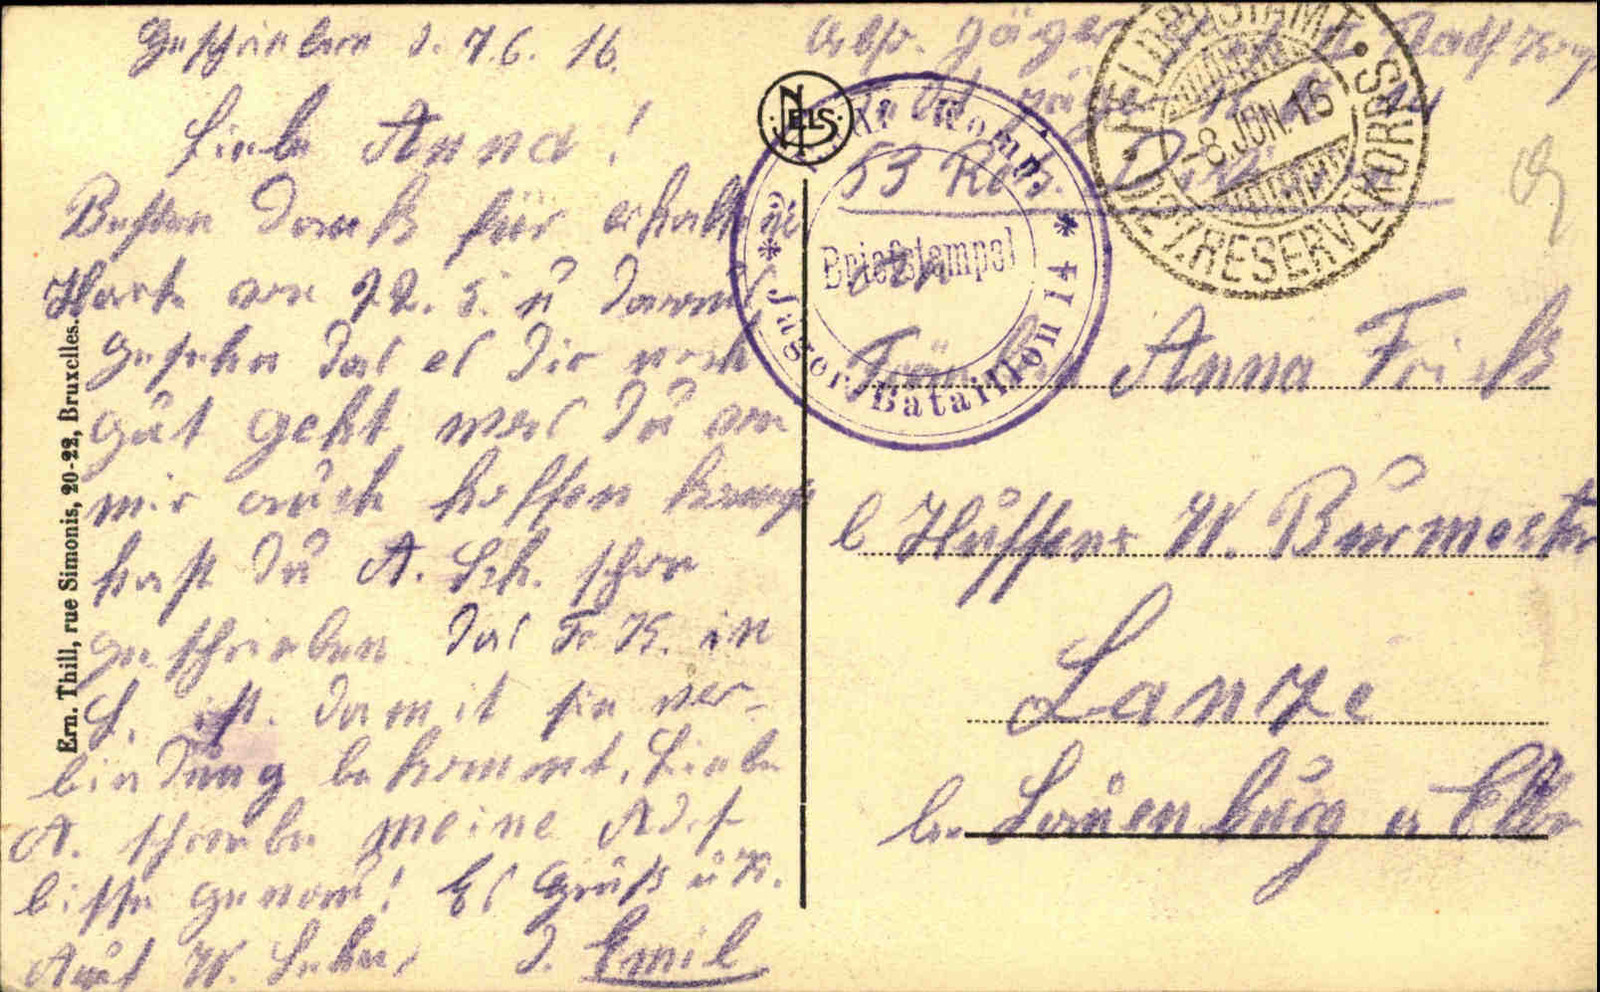 Geschrieben d. 7.6. 16.
Liebe Anna!
Besten Dank für erhaltene
Karte vom 22. 5. u daraus
gesehn das es Dir noch
gut geht, was Du von
mir auch hoffen kannst
hast Du A. Sch. schon
geschrieben das Fr. K. in
L. ist. damit sie ver-
bindung bekommt. Liebe
A. schreibe meine Adr.
bitte genau! Es Grüßt u K.
Auf W. Sehn, D. Emil
Ern. Thill, rue Simonis, 20-22, Bruxelles.
NELS
Jäger
53 Res.
Briefstempel
* Jäger Bataillon 14 *
FELDPOSTAMT
-8.JUN.16
D. 27. RESERVEKORPS
Fräulein Anna Frieß
b Hufner W. Burmester
Lanze
bei Lauenburg a Elbe